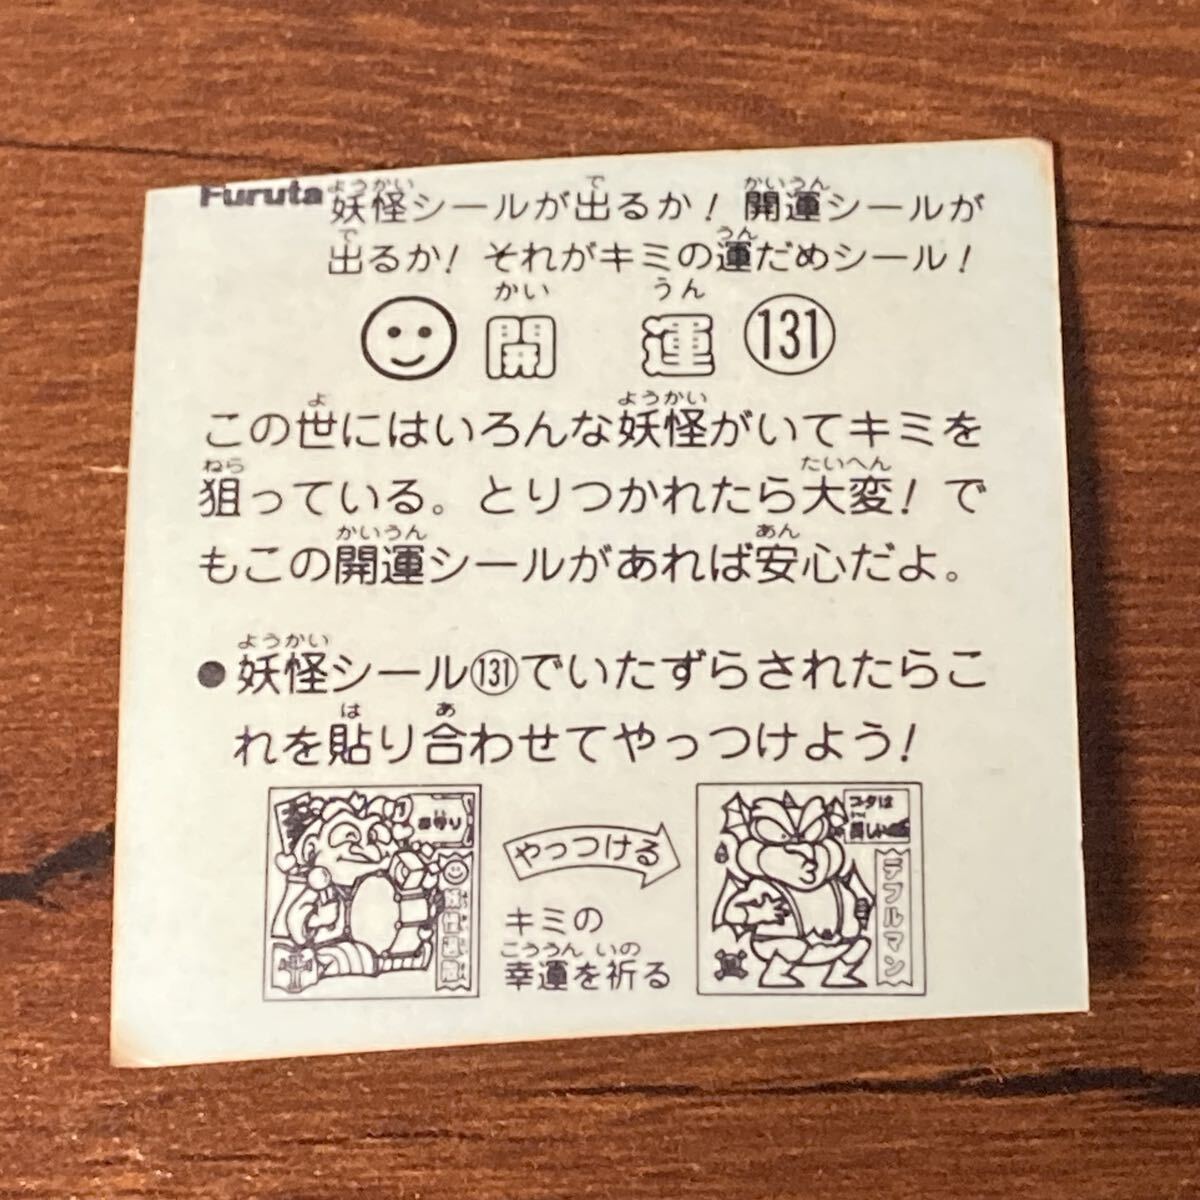 Furuta 妖怪シールが出るか！開運シールが
出るか！それがキミの運だめシール！
開運 131
この世にはいろんな妖怪がいてキミを
狙っている。とりつかれたら大変！で
もこの開運シールがあれば安心だよ。
●妖怪シール131でいたずらされたらこ
れを貼り合わせてやっつけよう！
やっつける
キミの
幸運を祈る
お守り
ブタは
デブルマン